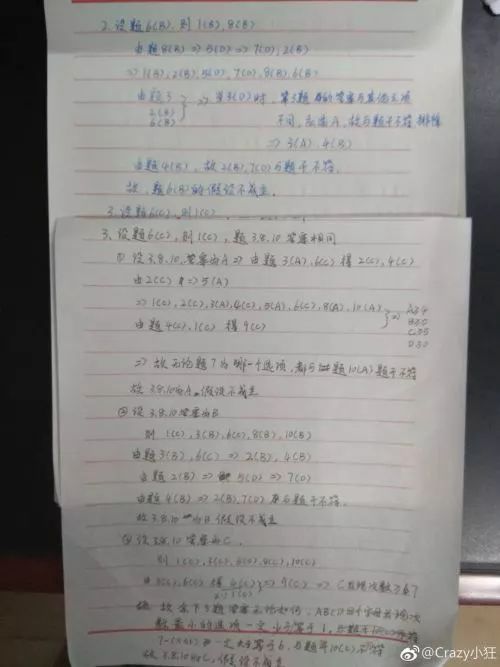 2. 设题6(B), 则1(B), 8(B)
由题8(B) => 5(D) => 7(D), 2(B)
=> 1(B), 2(B), 5(D), 7(D), 8(B), 6(B)
由题3
2(B)
6(B)
} => 当3(D)时, 第3题的答案与其他三项
不同, 应选A, 故与题干不符 排除
=> 3(A), 4(B)
由题4(B), 故2(B), 7(D)与题干不符.
故, 题6(B)的假设不成立.
3. 设题6(C), 则1(C),
3. 设题6(C), 则1(C), 题3.8.10答案相同
① 设3.8.10.答案为A => 由题3(A), 6(C)得2(C), 4(C)
由2(C) => 5(A)
=> 1(C), 2(C), 3(A), 4(C), 5(A), 6(C), 8(A), 10(A)
由题4(C), 1(C) 得9(C)
} =>
=> 故无论题7为哪一个选项, 都与题10(A)题干不符
故3.8.10为A 假设不成立
② 设3.8.10答案为B
则1(C), 3(B), 6(C), 8(B), 10(B)
由题3(B), 6(C) => 2(B), 4(B)
由题2(B) => 5(D) => 7(D)
由题4(B) => 2(B), 7(D) 与题干不符.
故3.8.10为B 假设不成立
③ 设3.8.10答案为C.
则1(C), 3(C), 6(C), 8(C), 10(C)
=> 9(C) => C出现次数≥6
故余下 题答案无论如何, ABCD四个字母出现次
数最小的选项一定小于等于1,
一定大于等于6, 与题10(C)不符
故3.8.10为C, 假设不成立
@Crazy小狂